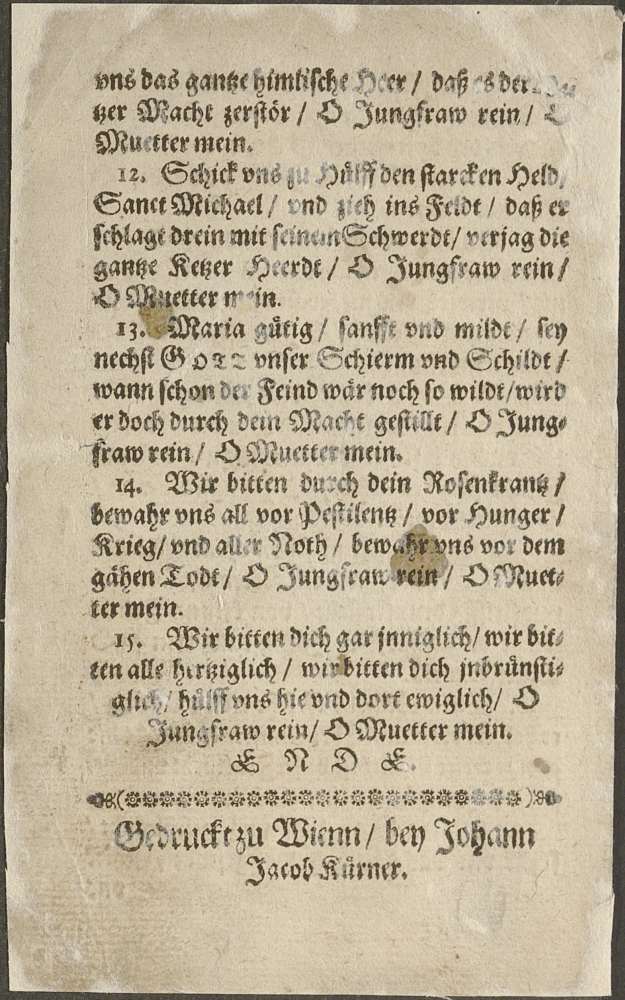 vns das gantze himlische Heer / daß es der
tzer Macht zerstör / O Jungfraw rein / O
Muetter mein.
12. Schick vns zu Hülff den starcken Held /
Sanct Michael / vnd zieh ins Feldt / daß er
schlage drein mit seinem Schwerdt / verjag die
gantze Ketzer Heerdt / O Jungfraw rein /
O Muetter mein.
13. Maria gütig / sanfft vnd mildt / sey
nechst GOTT vnser Schierm vnd Schildt /
wann schon der Feind wär noch so wildt / wird
er doch durch dein Macht gestillt / O Jung-
fraw rein / O Muetter mein.
14. Wir bitten durch dein Rosenkrantz /
bewahr vns all vor Pestilentz / vor Hunger /
Krieg / vnd aller Noth / bewahr vns vor dem
gähen Todt / O Jungfraw rein / O Muet-
ter mein.
15. Wir bitten dich gar jnniglich / wir bit-
ten alle hertziglich / wir bitten dich jnbrünsti-
glich / hülff vns hie vnd dort ewiglich / O
Jungfraw rein / O Muetter mein.
E N D E.
Gedruckt zu Wienn / bey Johann
Jacob Kürner.